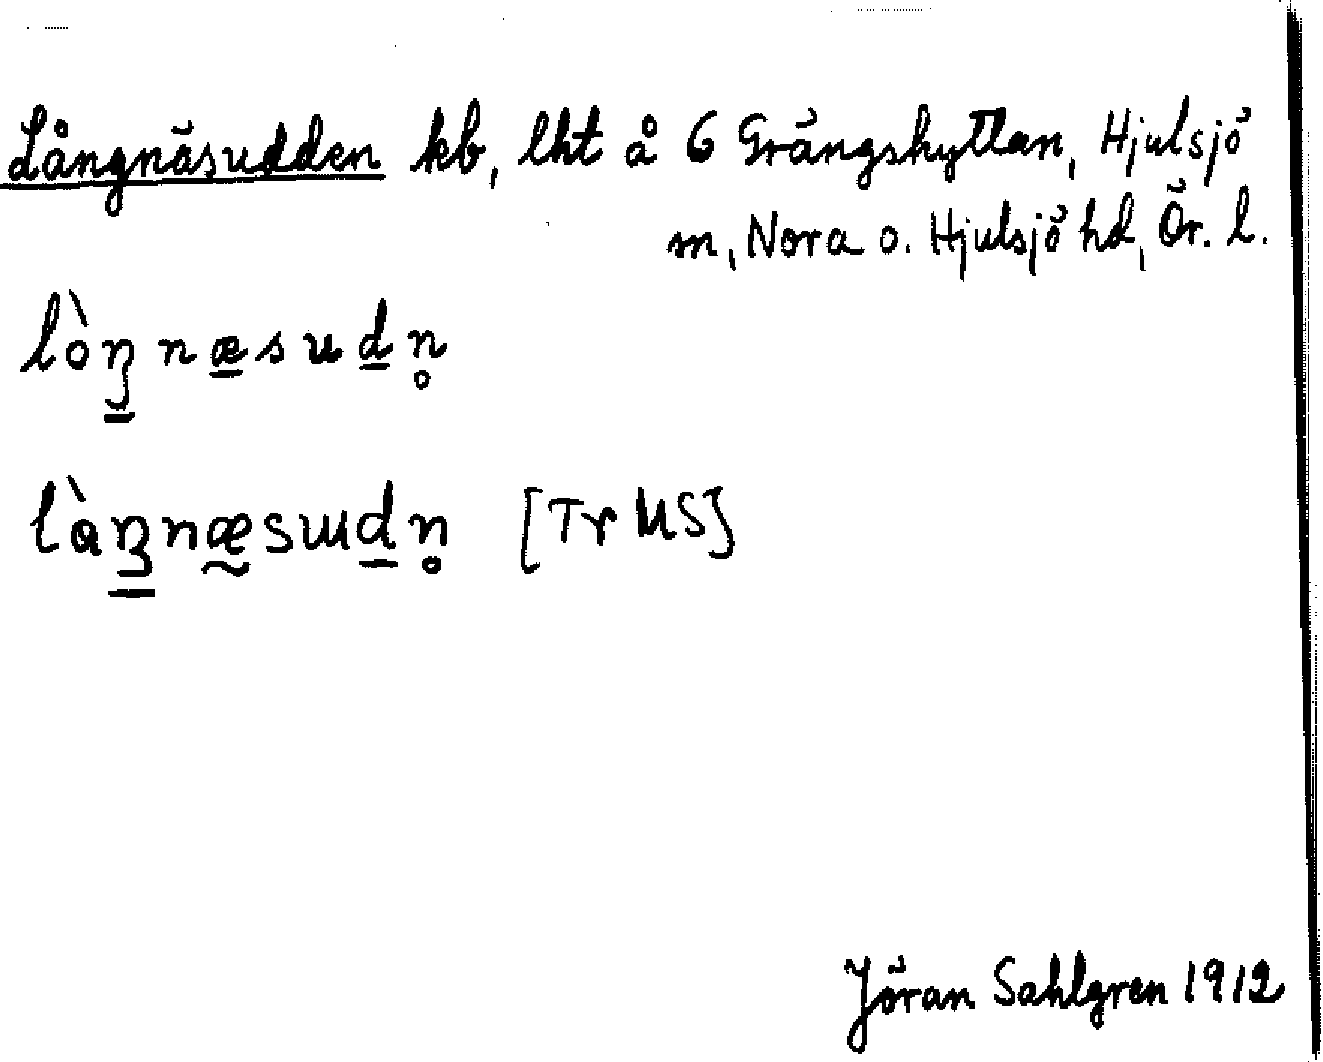 Långnäsudden kb, lht å 6 Grängshyttan, Hjulsjö
m, Nora o. Hjulsjö hd, Ör. l.
lòŋ̳næ̲sud̲n̥
làŋ̳næ̰sɯd̲n̥ [Tr MS]
Jöran Sahlgren 1912